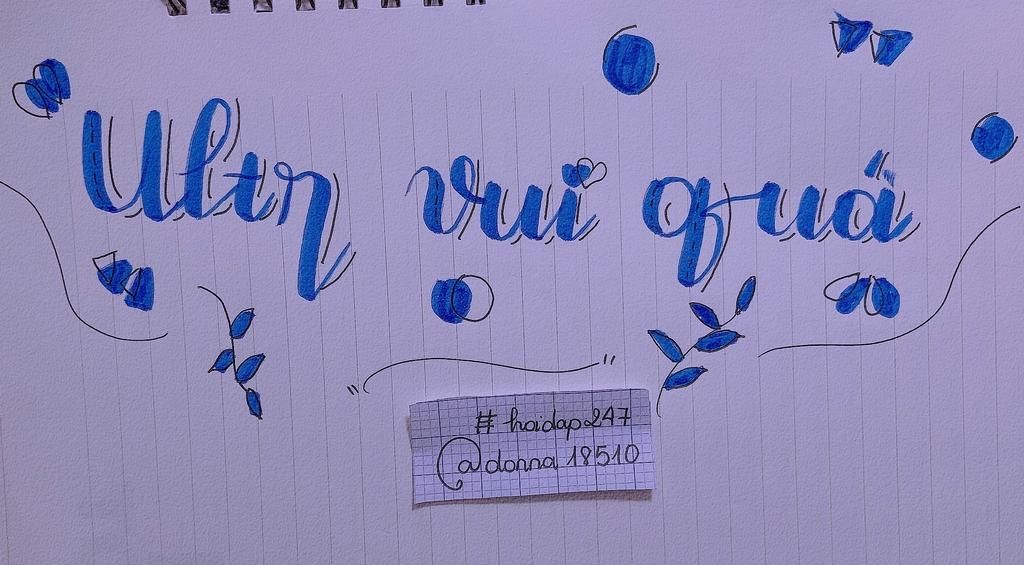 Ultr vui quá
# hoidap247
@donna18510